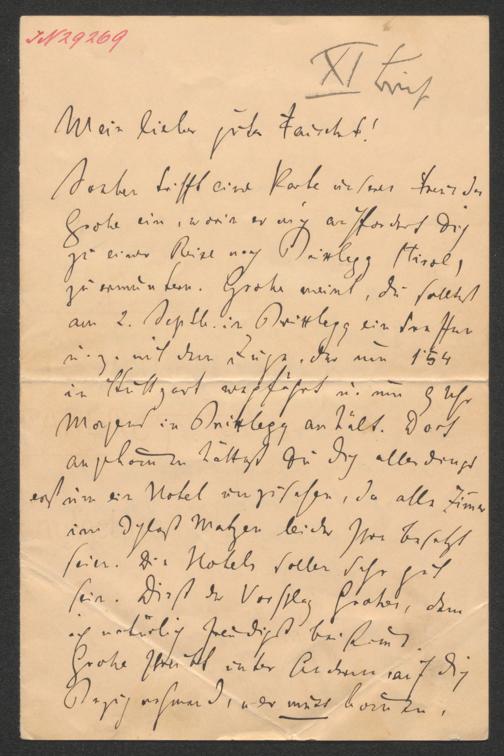 JN 29269
XI Brief
Mein lieber guter Faisst!
Soeben trifft eine Karte unseres Freundes
Grohe ein, worin er mich auffordert Dich
zu einer Reise nach Brixlegg (Tirol)
zu ermuntern. Grohe meint, du solltest
am 2. Septb. in Brixlegg eintreffen
u. z. mit dem Zuge, der um 154
in Stuttgart wegfährt u. um 9 Uhr
Morgens in Brixlegg anhält. Dort
angekommen hättest Du Dich allerdings
erst um ein Hotel umzusehen, da alle Zimmer
im Schloß Matzen leider schon besetzt
seien. Die Hotels sollen sehr gut
sein. Dieß der Vorschlag Grohes, dem
ich natürlich freudigst beistimme.
Grohe schreibt unter Anderm, auf Dich
Bezug nehmend, „er muss kommen.